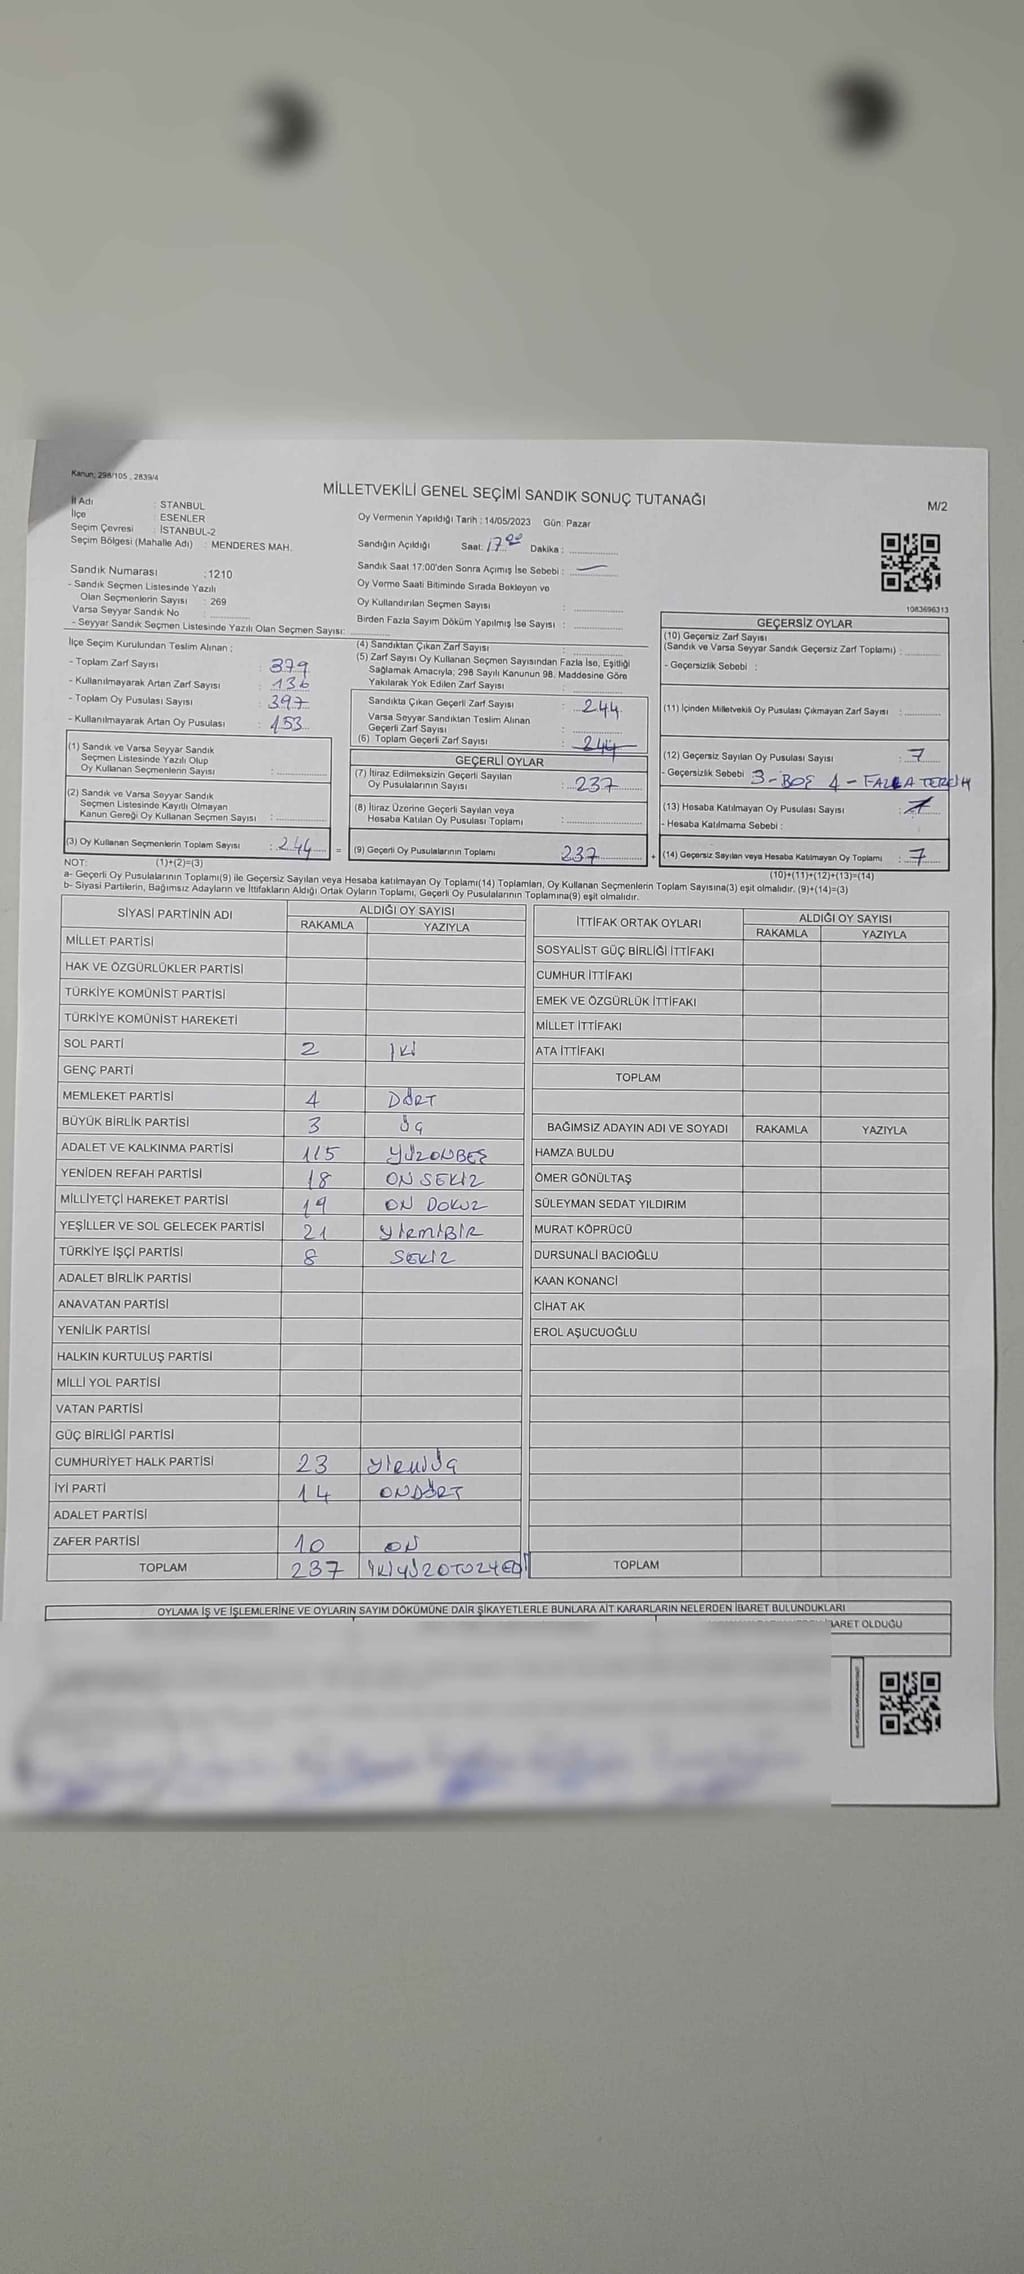 Kanun: 298/105 , 2839/4
MİLLETVEKİLİ GENEL SEÇİMİ SANDIK SONUÇ TUTANAĞI
M/2
İl Adı : STANBUL
İlçe : ESENLER
Seçim Çevresi : İSTANBUL-2
Seçim Bölgesi (Mahalle Adı) : MENDERES MAH.
Sandık Numarası :1210
- Sandık Seçmen Listesinde Yazılı
Olan Seçmenlerin Sayısı : 269
Varsa Seyyar Sandık No :
- Seyyar Sandık Seçmen Listesinde Yazılı Olan Seçmen Sayısı:
Oy Vermenin Yapıldığı Tarih : 14/05/2023 Gün: Pazar
Sandığın Açıldığı Saat: 17.00 Dakika :
Sandık Saat 17.00'den Sonra Açımış İse Sebebi : —
Oy Verme Saati Bitiminde Sırada Bekleyen ve
Oy Kullandırılan Seçmen Sayısı :
Birden Fazla Sayım Döküm Yapılmış İse Sayısı :
1083696313
İlçe Seçim Kurulundan Teslim Alınan ;
- Toplam Zarf Sayısı : 379
- Kullanılmayarak Artan Zarf Sayısı : 136
- Toplam Oy Pusulası Sayısı : 397
- Kullanılmayarak Artan Oy Pusulası : 153
(1) Sandık ve Varsa Seyyar Sandık
Seçmen Listesinde Yazılı Olup
Oy Kullanan Seçmenlerin Sayısı :
(2) Sandık ve Varsa Seyyar Sandık
Seçmen Listesinde Kayıtlı Olmayan
Kanun Gereği Oy Kullanan Seçmen Sayısı :
(3) Oy Kullanan Seçmenlerin Toplam Sayısı : 244 =
(4) Sandıktan Çıkan Zarf Sayısı :
(5) Zarf Sayısı Oy Kullanan Seçmen Sayısından Fazla İse, Eşitliği
Sağlamak Amacıyla, 298 Sayılı Kanunun 98. Maddesine Göre
Yakılarak Yok Edilen Zarf Sayısı :
Sandıkta Çıkan Geçerli Zarf Sayısı : 244
Varsa Seyyar Sandıktan Teslim Alınan
Geçerli Zarf Sayısı :
(6) Toplam Geçerli Zarf Sayısı : 244
GEÇERLİ OYLAR
(7) İtiraz Edilmeksizin Geçerli Sayılan
Oy Pusulalarının Sayısı : 237
(8) İtiraz Üzerine Geçerli Sayılan veya
Hesaba Katılan Oy Pusulası Toplamı :
(9) Geçerli Oy Pusulalarının Toplamı 237 +
GEÇERSİZ OYLAR
(10) Geçersiz Zarf Sayısı
(Sandık ve Varsa Seyyar Sandık Geçersiz Zarf Toplamı) :
- Geçersizlik Sebebi :
(11) İçinden Milletvekili Oy Pusulası Çıkmayan Zarf Sayısı :
(12) Geçersiz Sayılan Oy Pusulası Sayısı : 7
- Geçersizlik Sebebi 3-BOŞ 4-FAZLA TERCİH
(13) Hesaba Katılmayan Oy Pusulası Sayısı :
- Hesaba Katılmama Sebebi :
(14) Geçersiz Sayılan veya Hesaba Katılmayan Oy Toplamı : 7
NOT: (1)+(2)=(3)
(10)+(11)+(12)+(13)=(14)
a- Geçerli Oy Pusulalarının Toplamı(9) ile Geçersiz Sayılan veya Hesaba katılmayan Oy Toplamı(14) Toplamları, Oy Kullanan Seçmenlerin Toplam Sayısına(3) eşit olmalıdır. (9)+(14)=(3)
b- Siyasi Partilerin, Bağımsız Adayların ve İttifakların Aldığı Ortak Oyların Toplamı, Geçerli Oy Pusulalarının Toplamına(9) eşit olmalıdır.
SİYASİ PARTİNİN ADI ALDIĞI OY SAYISI
RAKAMLA YAZIYLA
MİLLET PARTİSİ
HAK VE ÖZGÜRLÜKLER PARTİSİ
TÜRKİYE KOMÜNİST PARTİSİ
TÜRKİYE KOMÜNİST HAREKETİ
SOL PARTİ 2 İKİ
GENÇ PARTİ
MEMLEKET PARTİSİ 4 DÖRT
BÜYÜK BİRLİK PARTİSİ 3 ÜÇ
ADALET VE KALKINMA PARTİSİ 115 YÜZONBEŞ
YENİDEN REFAH PARTİSİ 18 ON SEKİZ
MİLLİYETÇİ HAREKET PARTİSİ 19 ON DOKUZ
YEŞİLLER VE SOL GELECEK PARTİSİ 21 YİRMİBİR
TÜRKİYE İŞÇİ PARTİSİ 8 SEKİZ
ADALET BİRLİK PARTİSİ
ANAVATAN PARTİSİ
YENİLİK PARTİSİ
HALKIN KURTULUŞ PARTİSİ
MİLLİ YOL PARTİSİ
VATAN PARTİSİ
GÜÇ BİRLİĞİ PARTİSİ
CUMHURİYET HALK PARTİSİ 23 YİRMİÜÇ
İYİ PARTİ 14 ONDÖRT
ADALET PARTİSİ
ZAFER PARTİSİ 10 ON
TOPLAM 237 İKİYÜZOTUZYEDİ
İTTİFAK ORTAK OYLARI ALDIĞI OY SAYISI
RAKAMLA YAZIYLA
SOSYALİST GÜÇ BİRLİĞİ İTTİFAKI
CUMHUR İTTİFAKI
EMEK VE ÖZGÜRLÜK İTTİFAKI
MİLLET İTTİFAKI
ATA İTTİFAKI
TOPLAM
BAĞIMSIZ ADAYIN ADI VE SOYADI RAKAMLA YAZIYLA
HAMZA BULDU
ÖMER GÖNÜLTAŞ
SÜLEYMAN SEDAT YILDIRIM
MURAT KÖPRÜCÜ
DURSUNALİ BACIOĞLU
KAAN KONANCİ
CİHAT AK
EROL AŞUCUOĞLU
TOPLAM
OYLAMA İŞ VE İŞLEMLERİNE VE OYLARIN SAYIM DÖKÜMÜNE DAİR ŞİKAYETLERLE BUNLARA AİT KARARLARIN NELERDEN İBARET BULUNDUKLARI
BARET OLDUĞU